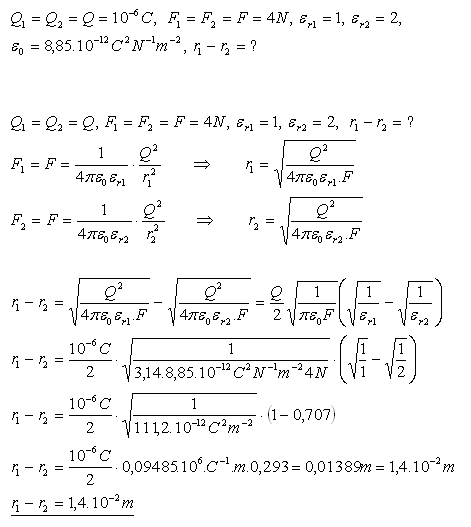 Q₁ = Q₂ = Q = 10⁻⁶ C, F₁ = F₂ = F = 4N, εr1 = 1, εr2 = 2,
ε₀ = 8,85.10⁻¹² C² N⁻¹ m⁻², r₁ − r₂ = ?
Q₁ = Q₂ = Q, F₁ = F₂ = F = 4N, εr1 = 1, εr2 = 2, r₁ − r₂ = ?
F₁ = F = 1/(4πε₀εr1) · Q²/r₁² ⇒ r₁ = √(Q²/(4πε₀εr1.F))
F₂ = F = 1/(4πε₀εr2) · Q²/r₂² ⇒ r₂ = √(Q²/(4πε₀εr2.F))
r₁ − r₂ = √(Q²/(4πε₀εr1.F)) − √(Q²/(4πε₀εr2.F)) = Q/2 √(1/(πε₀F)) (√(1/εr1) − √(1/εr2))
r₁ − r₂ = 10⁻⁶ C/2 · √(1/(3,14.8,85.10⁻¹² C² N⁻¹ m⁻² 4N)) · (√(1/1) − √(1/2))
r₁ − r₂ = 10⁻⁶ C/2 · √(1/(111,2.10⁻¹² C² m⁻²)) · (1 − 0,707)
r₁ − r₂ = 10⁻⁶ C/2 · 0,09485.10⁶.C⁻¹.m.0,293 = 0,01389m = 1,4.10⁻² m
r₁ − r₂ = 1,4.10⁻² m